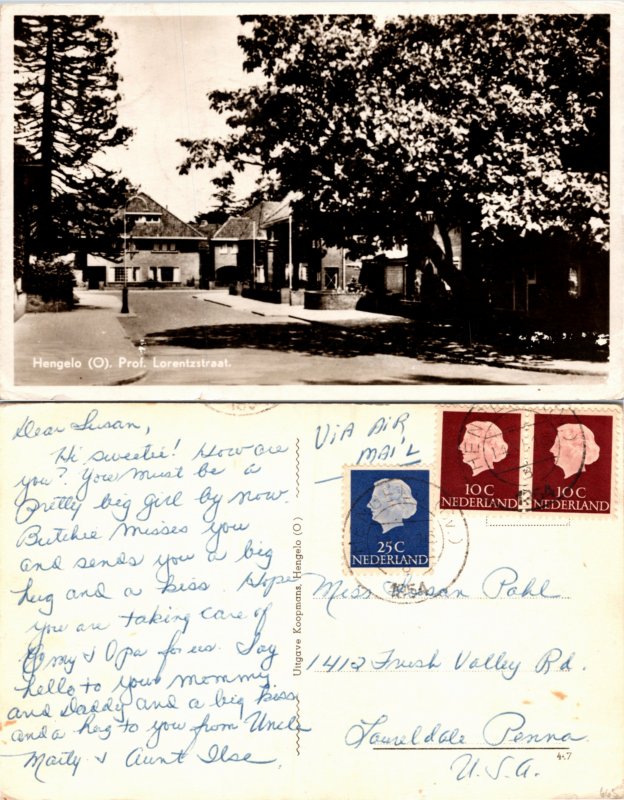 Hengelo (O). Prof. Lorentzstraat.
Dear Susan,
Hi sweetie! How are
you? You must be a
pretty big girl by now.
Butchie misses you
and sends you a big
hug and a kiss. Hope
you are taking care of
Omy & Opa for us. Say
hello to your mommy
and Daddy and a big kiss
and a hug to you from Uncle
Marty & Aunt Ilse.
Uitgave Koopmans, Hengelo (O)
VIA AIR
MAIL
25C
NEDERLAND
10C
NEDERLAND
10C
NEDERLAND
Miss Susan Pohl
1412 Frush Valley Rd.
Laureldale Penna
U.S.A.